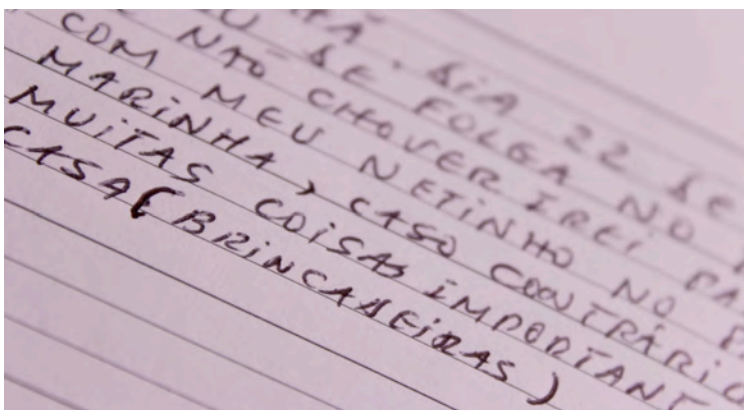 , DIA 22 DE
U DE FOLGA NO
E NÃO CHOVER IREI PA
COM MEU NETINHO NO PA
MARINHA, CASO CONTRÁRIO
MUITAS COISAS IMPORTANT
CASA (BRINCADEIRAS)